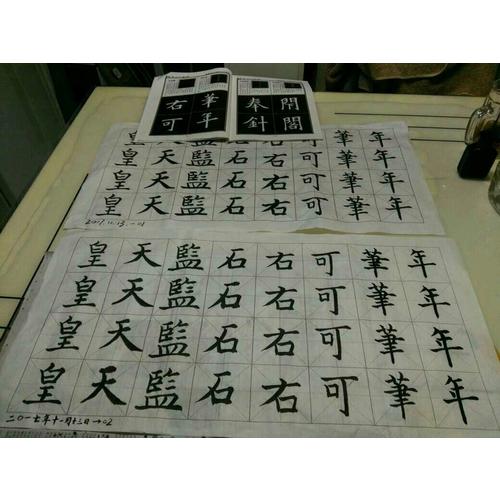 右 華 奉 開
可 年 針 閣
皇 天 監 石 右 可 華 年
皇 天 監 石 右 可 華 年
皇 天 監 石 右 可 華 年
皇 天 監 石 右 可 華 年
2017.11.13.-01
皇 天 監 石 右 可 華 年
皇 天 監 石 右 可 華 年
皇 天 監 石 右 可 華 年
皇 天 監 石 右 可 華 年
二〇一七年十一月十三日→02